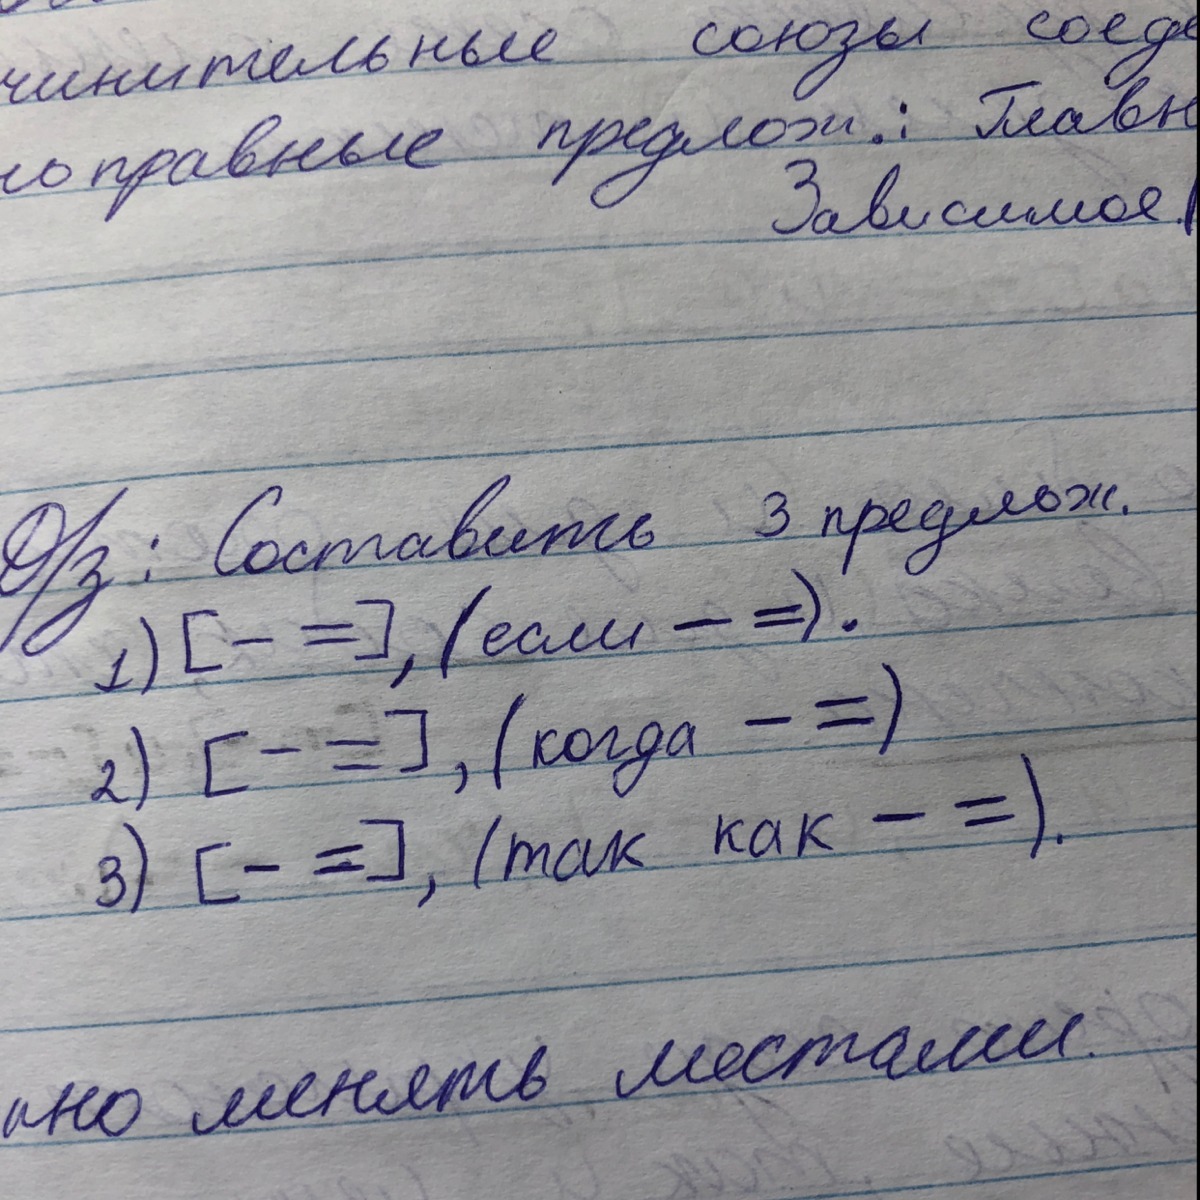 чинительные союзы соеди
ноправные предлож.: Главн
Зависимое.
Д/з: Составить 3 предлож.
1) [– =], (если – =).
2) [– =], (когда – =)
3) [– =], (так как – =).
но менять местами.